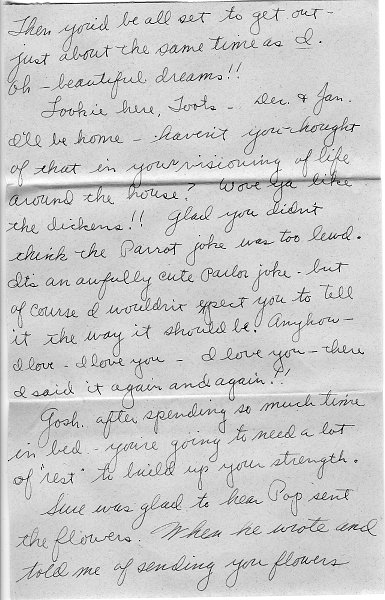 Then you'd be all set to get out -
just about the same time as I.
Oh - beautiful dreams!!
Lookie here, Toots - Dec. & Jan.
I'll be home - haven't you thought
of that in your visioning of life
around the house? Wove ya like
the dickens!! Glad you didn't
think the Parrot joke was too lewd.
It's an awfully cute parlor joke - but
of course I wouldn't expect you to tell
it the way it should be. Anyhow -
I love - I love you - I love you - there
I said it again and again!!
Gosh, after spending so much time
in bed - you're going to need a lot
of "rest" to build up your strength.
Sure was glad to hear Pop sent
the flowers. When he wrote and
told me of sending you flowers